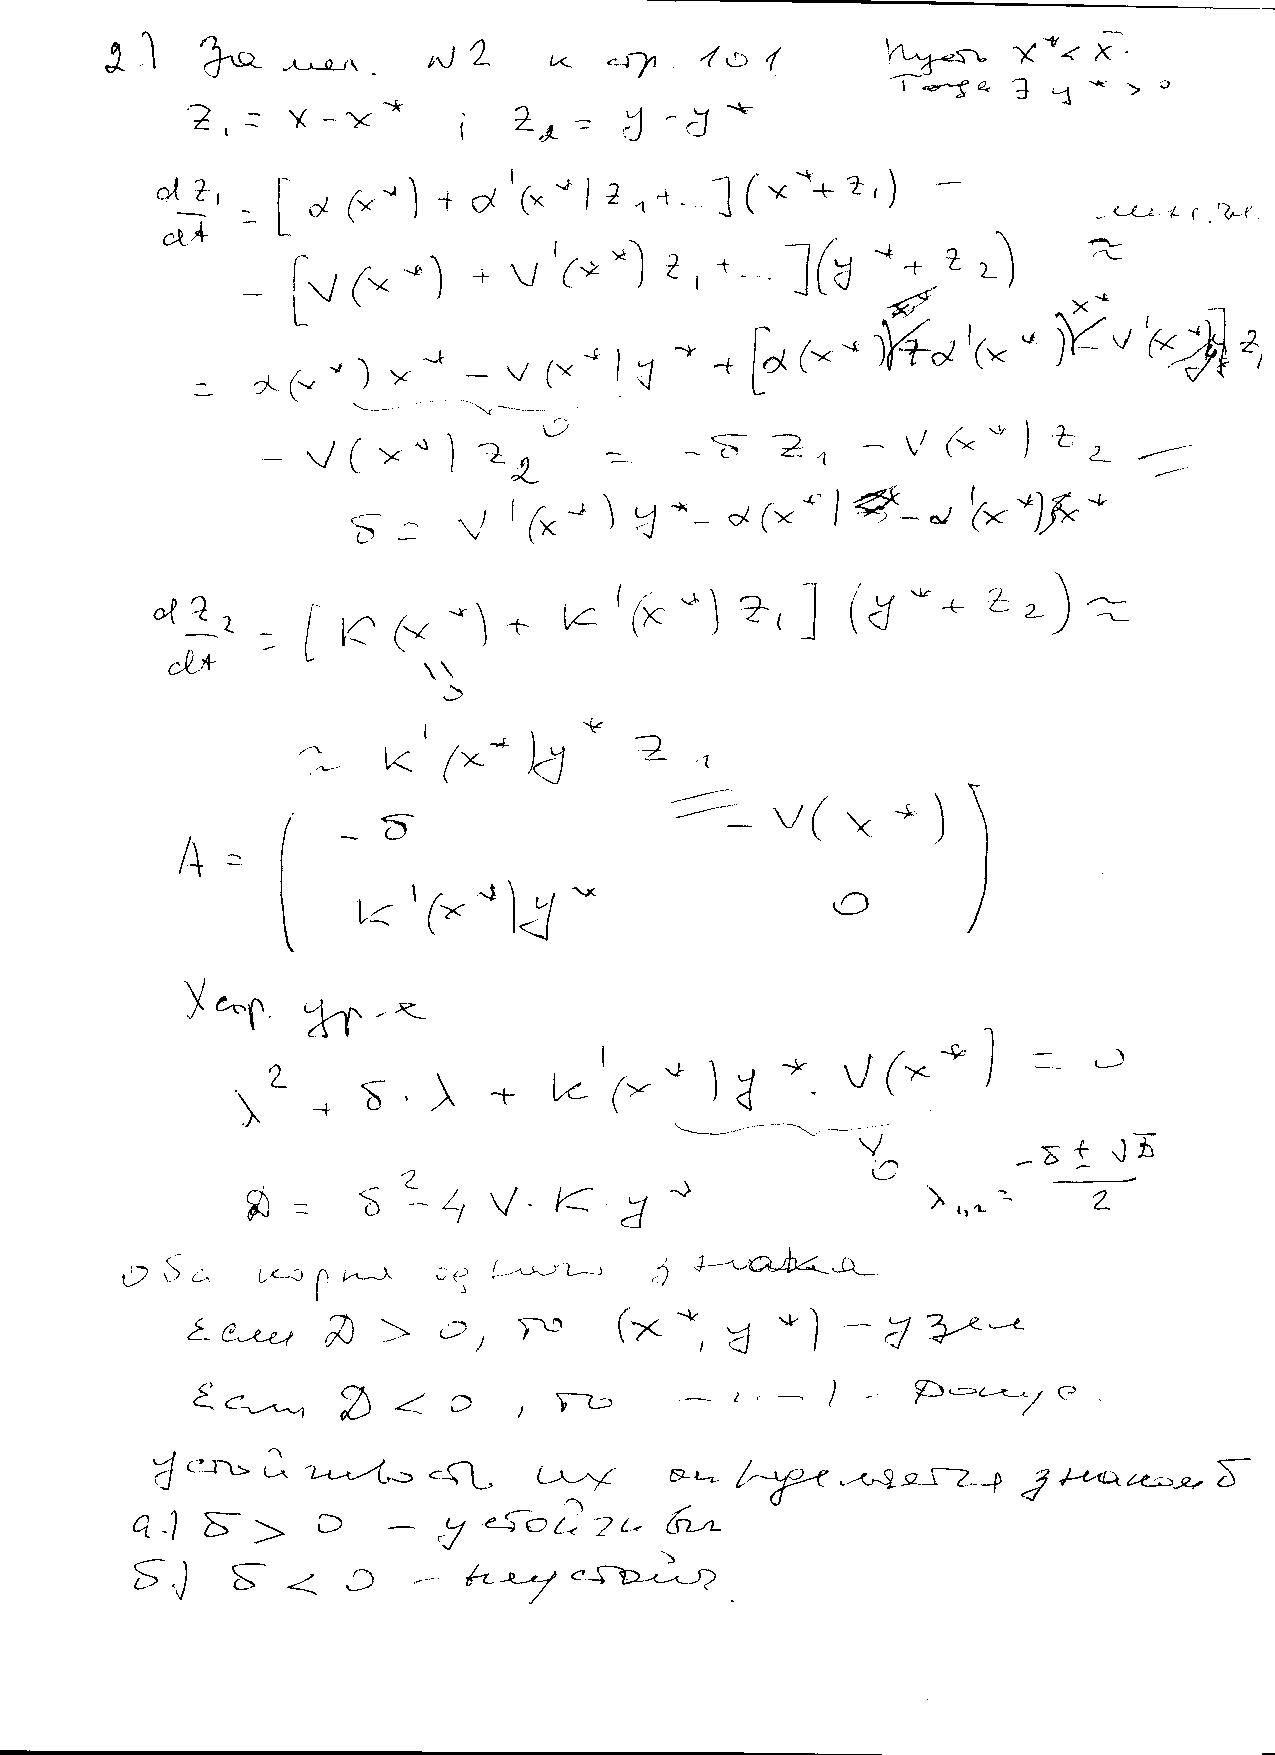 2.) Замеч. №2 к стр. 101
Пусть x* < x̄.
Тогда ∃ y* > 0
z₁ = x - x* ; z₂ = y - y*
dz₁/dt = [α(x*) + α'(x*)z₁ + ...](x* + z₁) -
- [V(x*) + V'(x*)z₁ + ...](y* + z₂) ≈
= α(x*)x* - V(x*)y* + [α(x*) + α'(x*)x* - V'(x*)y*]z₁
0
- V(x*)z₂ = -δz₁ - V(x*)z₂
δ = V'(x*)y* - α(x*) - α'(x*)x*
dz₂/dt = [K(x*) + K'(x*)z₁](y* + z₂) ≈
"
0
≈ K'(x*)y* z₁
A = ( -δ - V(x*)
K'(x*)y* 0 )
Хар. ур-е
λ² + δ·λ + K'(x*)y*·V(x*) = 0
V
0
D = δ² - 4V·K·y*
λ₁,₂ = (-δ ± √D)/2
Оба корня одного знака
Если D > 0, то (x*, y*) - узел
Если D < 0, то -"- фокус.
Устойчивость их определяется знаком δ
а.) δ > 0 - устойчивы
б.) δ < 0 - неустойч.